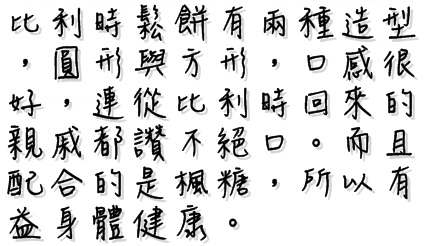 比利時鬆餅有兩種造型
，圓形與方形，口感很
好，連從比利時回來的
親戚都讚不絕口。而且
配合的是楓糖，所以有
益身體健康。